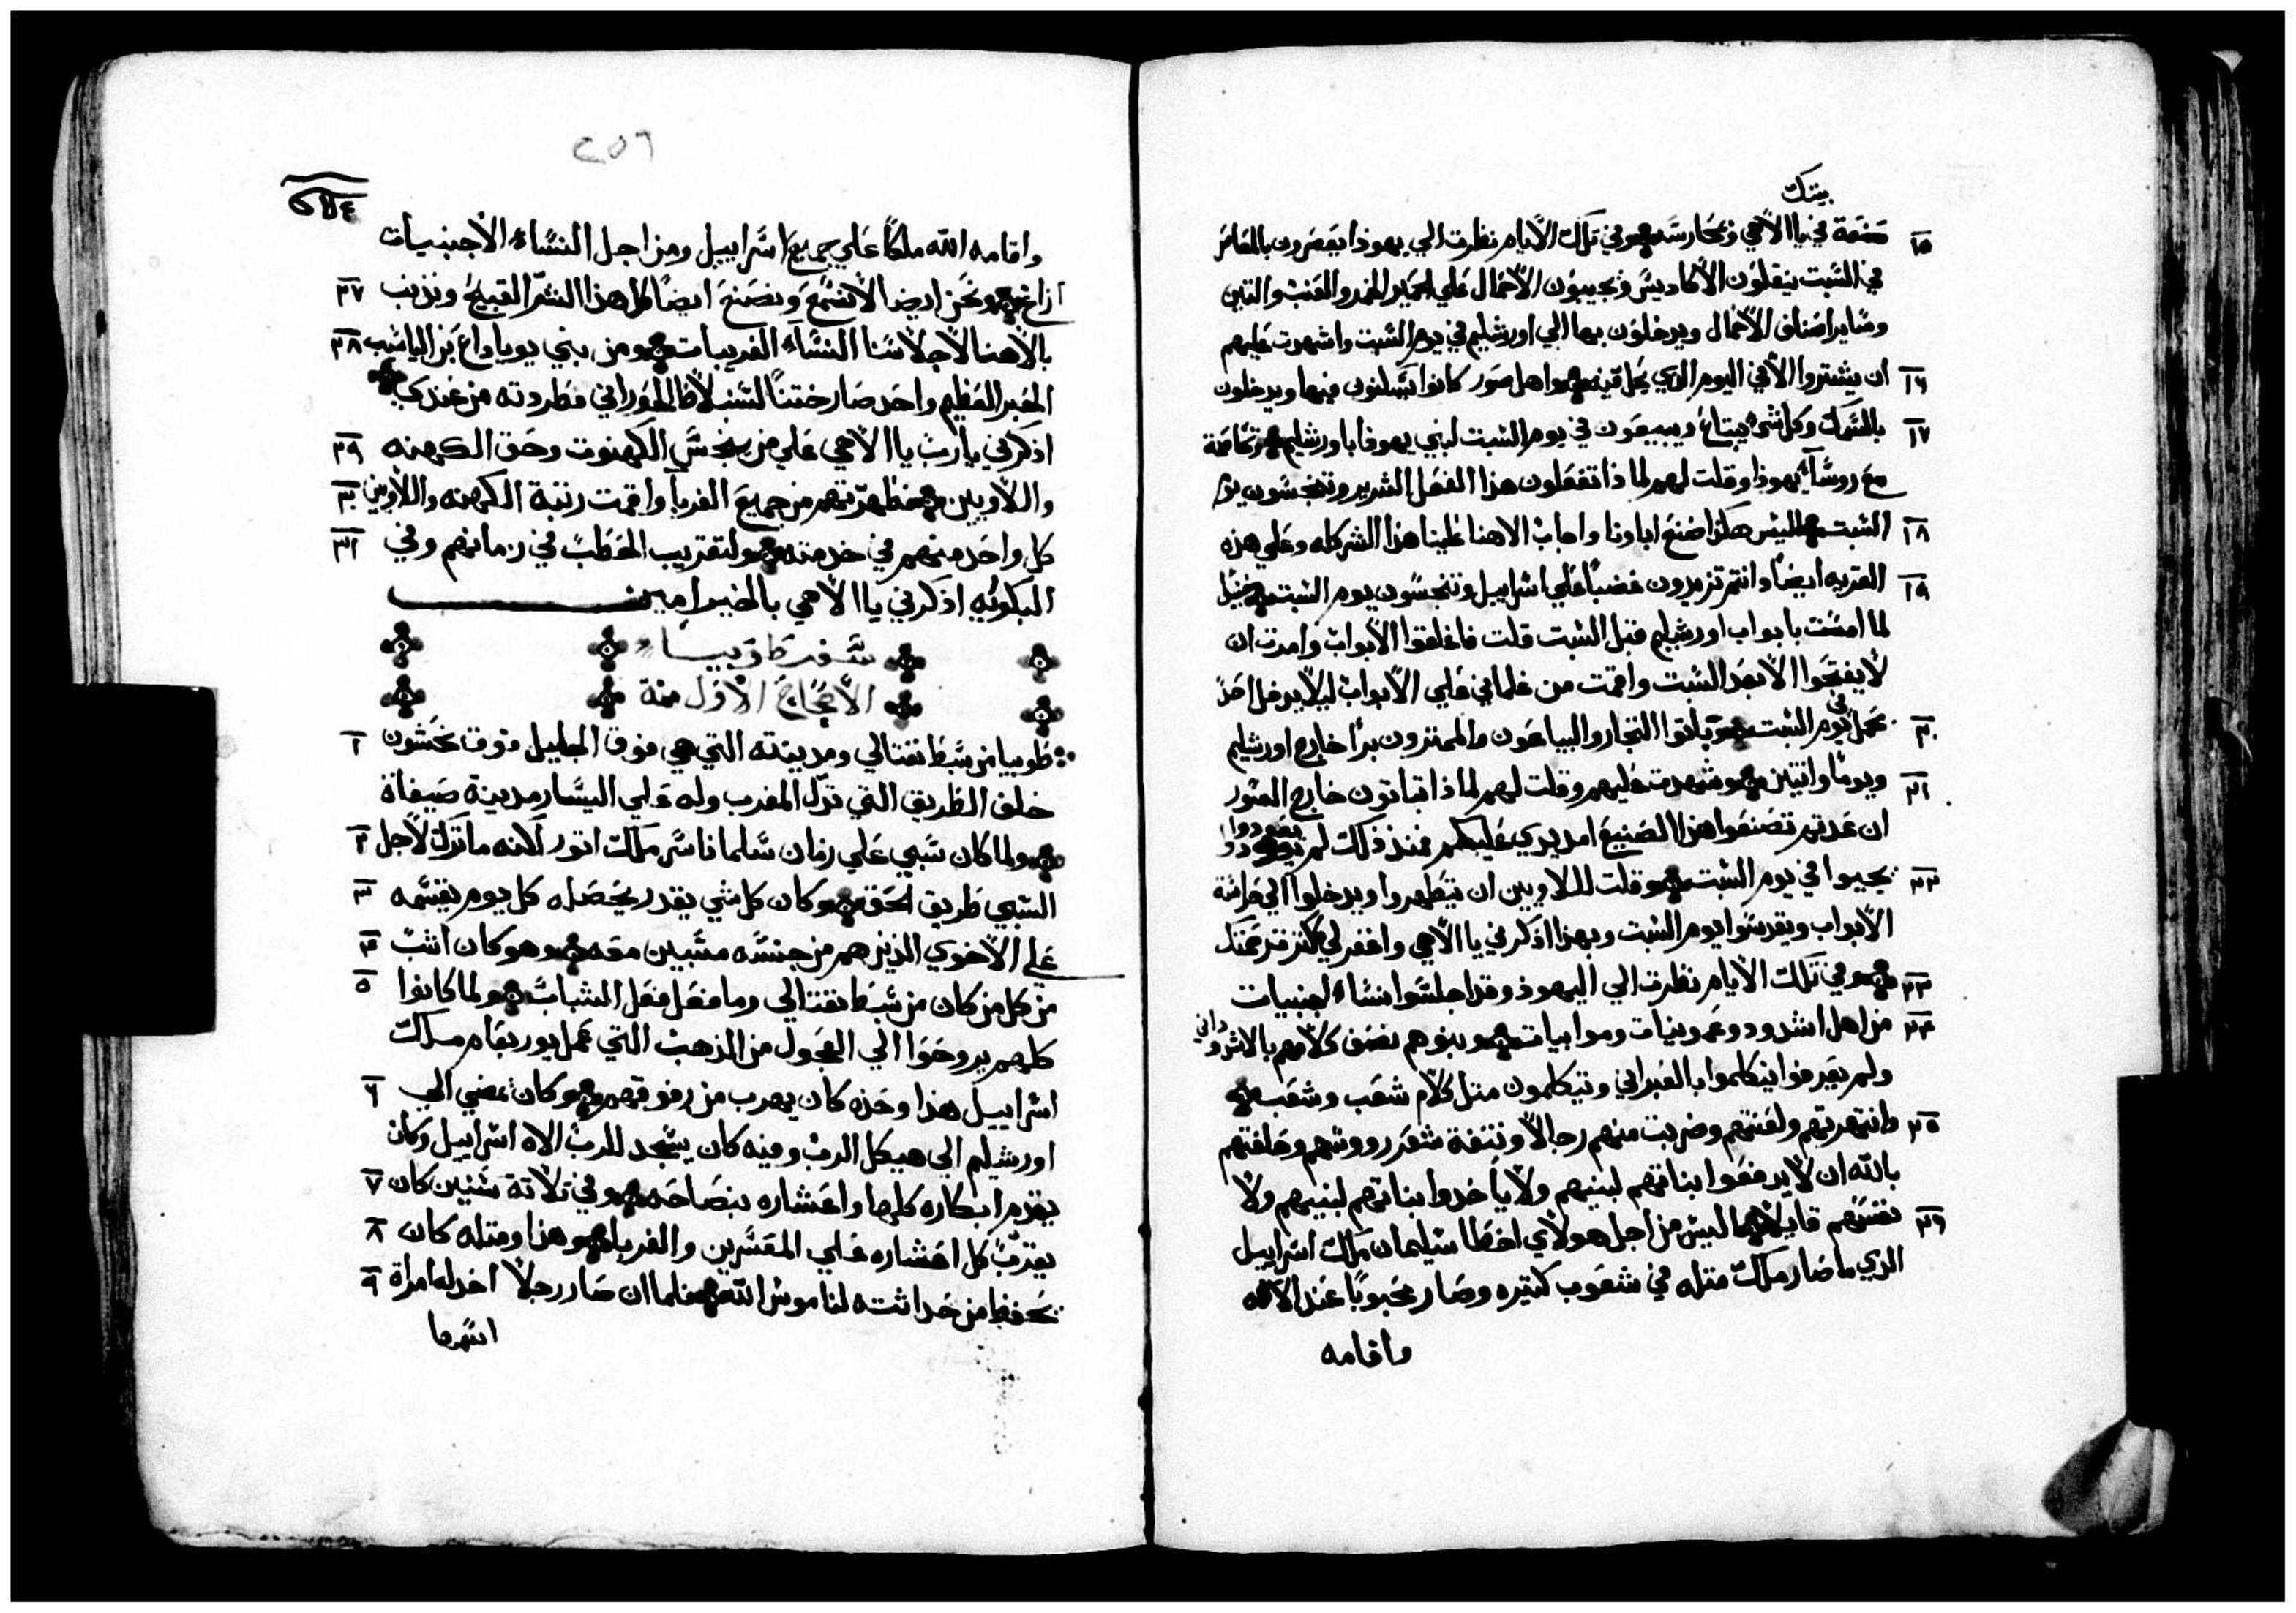 بيتك
١٥ صنعة في يا الاهي وبحارسه وفي تلك الأيام نظرت الي يهوذا يعصرون بالمعاصر
في السبت ينقلون الأكاديس ويجيبون الأحمال علي الحمير للخمر والعنب والتين
وساير اصناف الأحمال ويدخلون بها الي اورشليم في يوم السبت واشهدت عليهم
١٦ ان يشتروا الأفي اليوم الدي يحل فيه واهل صور كانوا يسكنون فيها ويدخلون
١٧ بالسمك وكل شي يبتاع ويبيعون في يوم السبت لبني يهوذا باورشليم
مع روسآء يهوذا وقلت لهم لماذا تفعلون هذا الفعل الشرير وتنجسون يوم
١٨ السبت اليس هكذا صنع اباونا واجاب الاهنا علينا هذا الشر كله وعلي هذه
١٩ القريه ايضًا وانتم تزيدون غضبًا علي اسراييل وتنجسون يوم السبت
لما امست بابواب اورشليم قبل السبت قلت فاغلقوا الأبواب وامرت ان
لأ يفتحوا الأ بعد السبت واقمت من غلماني علي الأبواب ليلأ يدخل احد
٢٠ بحمل في يوم السبت وباتوا التجار والبياعون والممتزون برأ خارج اورشليم
٢١ ويومًا واثنين وشهدت عليهم وقلت لهم لماذا تباتون خارج السور
ان عدتم تصنعوا هذا الصنيع امد يدي عليكم فمنذ ذلك لم يعودوا
٢٢ يجيبوا في يوم السبت وقلت لللاويين ان يتطهروا ويدخلوا الي حراسة
الأبواب ويقدسوا يوم السبت وبهذا اذكرني يا الأهي واغفر لي ككثرة رحمتك
٢٣ وفي تلك الأيام نظرت الي اليهوذ وقد اجلسوا نساء اجنبيات
٢٤ من اهل اشدود وعمونيات وموابيات وبنوهم نصف كلامهم بالاشدوداني
ولم يعرفوا يتكلموا بالعبراني ويتكلمون متل كلام شعب وشعب
٢٥ وانتهرتهم ولعنتهم وضربت منهم رجالأ ونتفة شعر رووسهم وحلفتهم
بالله ان لأ يدفعوا بناتهم لبنيهم ولأ ياخدوا بناتهم لبنيهم ولأ
٢٦ نفسهم قايلأ اليس من اجل هولأي اخطا سليمان ملك اسراييل
الدي ما صار ملك متله في شعوب كتيره وصار محبوبًا عند الأله
واقامه
٢٥٦
واقامه الله ملكًا علي جميع اسراييل ومن اجل النساء الأجنبيات
٢٧ ازاغ ونحن ايضا الأ نسمع ونصنع ايضًا كل هذا الشر القبيح ونذنب
٢٨ بالأهنا لأجلأسنا النسآء الغريبات ومن بني يوياداع بن الياشب
الحبر العظيم واحد صار ختنًا لسنبلأط الحوراني فطردته من عندي
٢٩ اذكرني يارب يا الأهي علي من ينجس الكهنوت وحق الكهنه
٣٠ واللأويين وطهرتهم من جميع الغربآ واقمت رتبة الكهنه واللأويين
٣١ كل واحد منهم في خدمته ولتقريب الحطب في زمانهم وفي
البكوريه اذكرني يا الأهي بالخير امين
سفر طوبيا
الأصحاح الأول منه
١ طوبيا من سبط نفتالي ومدينته التي هي فوق الجليل فوق نحشون
خلف الطريق التي تودّ المغرب وله علي اليسار مدينة صيفاة
٢ ولما كان سبي علي زمان سلماناسر ملك اتور لانه ما ترك لأجل
٣ السبي طريق الحق وكان كل شي يقدر يحصله كل يوم يقسمه
٤ علي الأخوي الذين هم من جنسه مسبين معه وهو كان اشب
٥ من كل من كان من سبط نفتالي وما فعل فعل الشباب ولما كانوا
كلهم يروحوا الي العجول من الذهب التي عمل يوربعام ملك
٦ اسراييل هذا وحده كان يهرب من رفوقهم وكان يمضي الي
اورشليم الي هيكل الرب وفيه كان يسجد للرب الاه اسراييل وكان
٧ يقدم ابكاره كلها واعشاره بنصاحه وفي تلأتة سنين كان
٨ يقرب كل اعشاره علي المعسرين والغربا وهذا ومتله كان
٩ يحفظ من حداثته لناموس الله فلما ان صار رجلأ اخد له امراة
اسمها